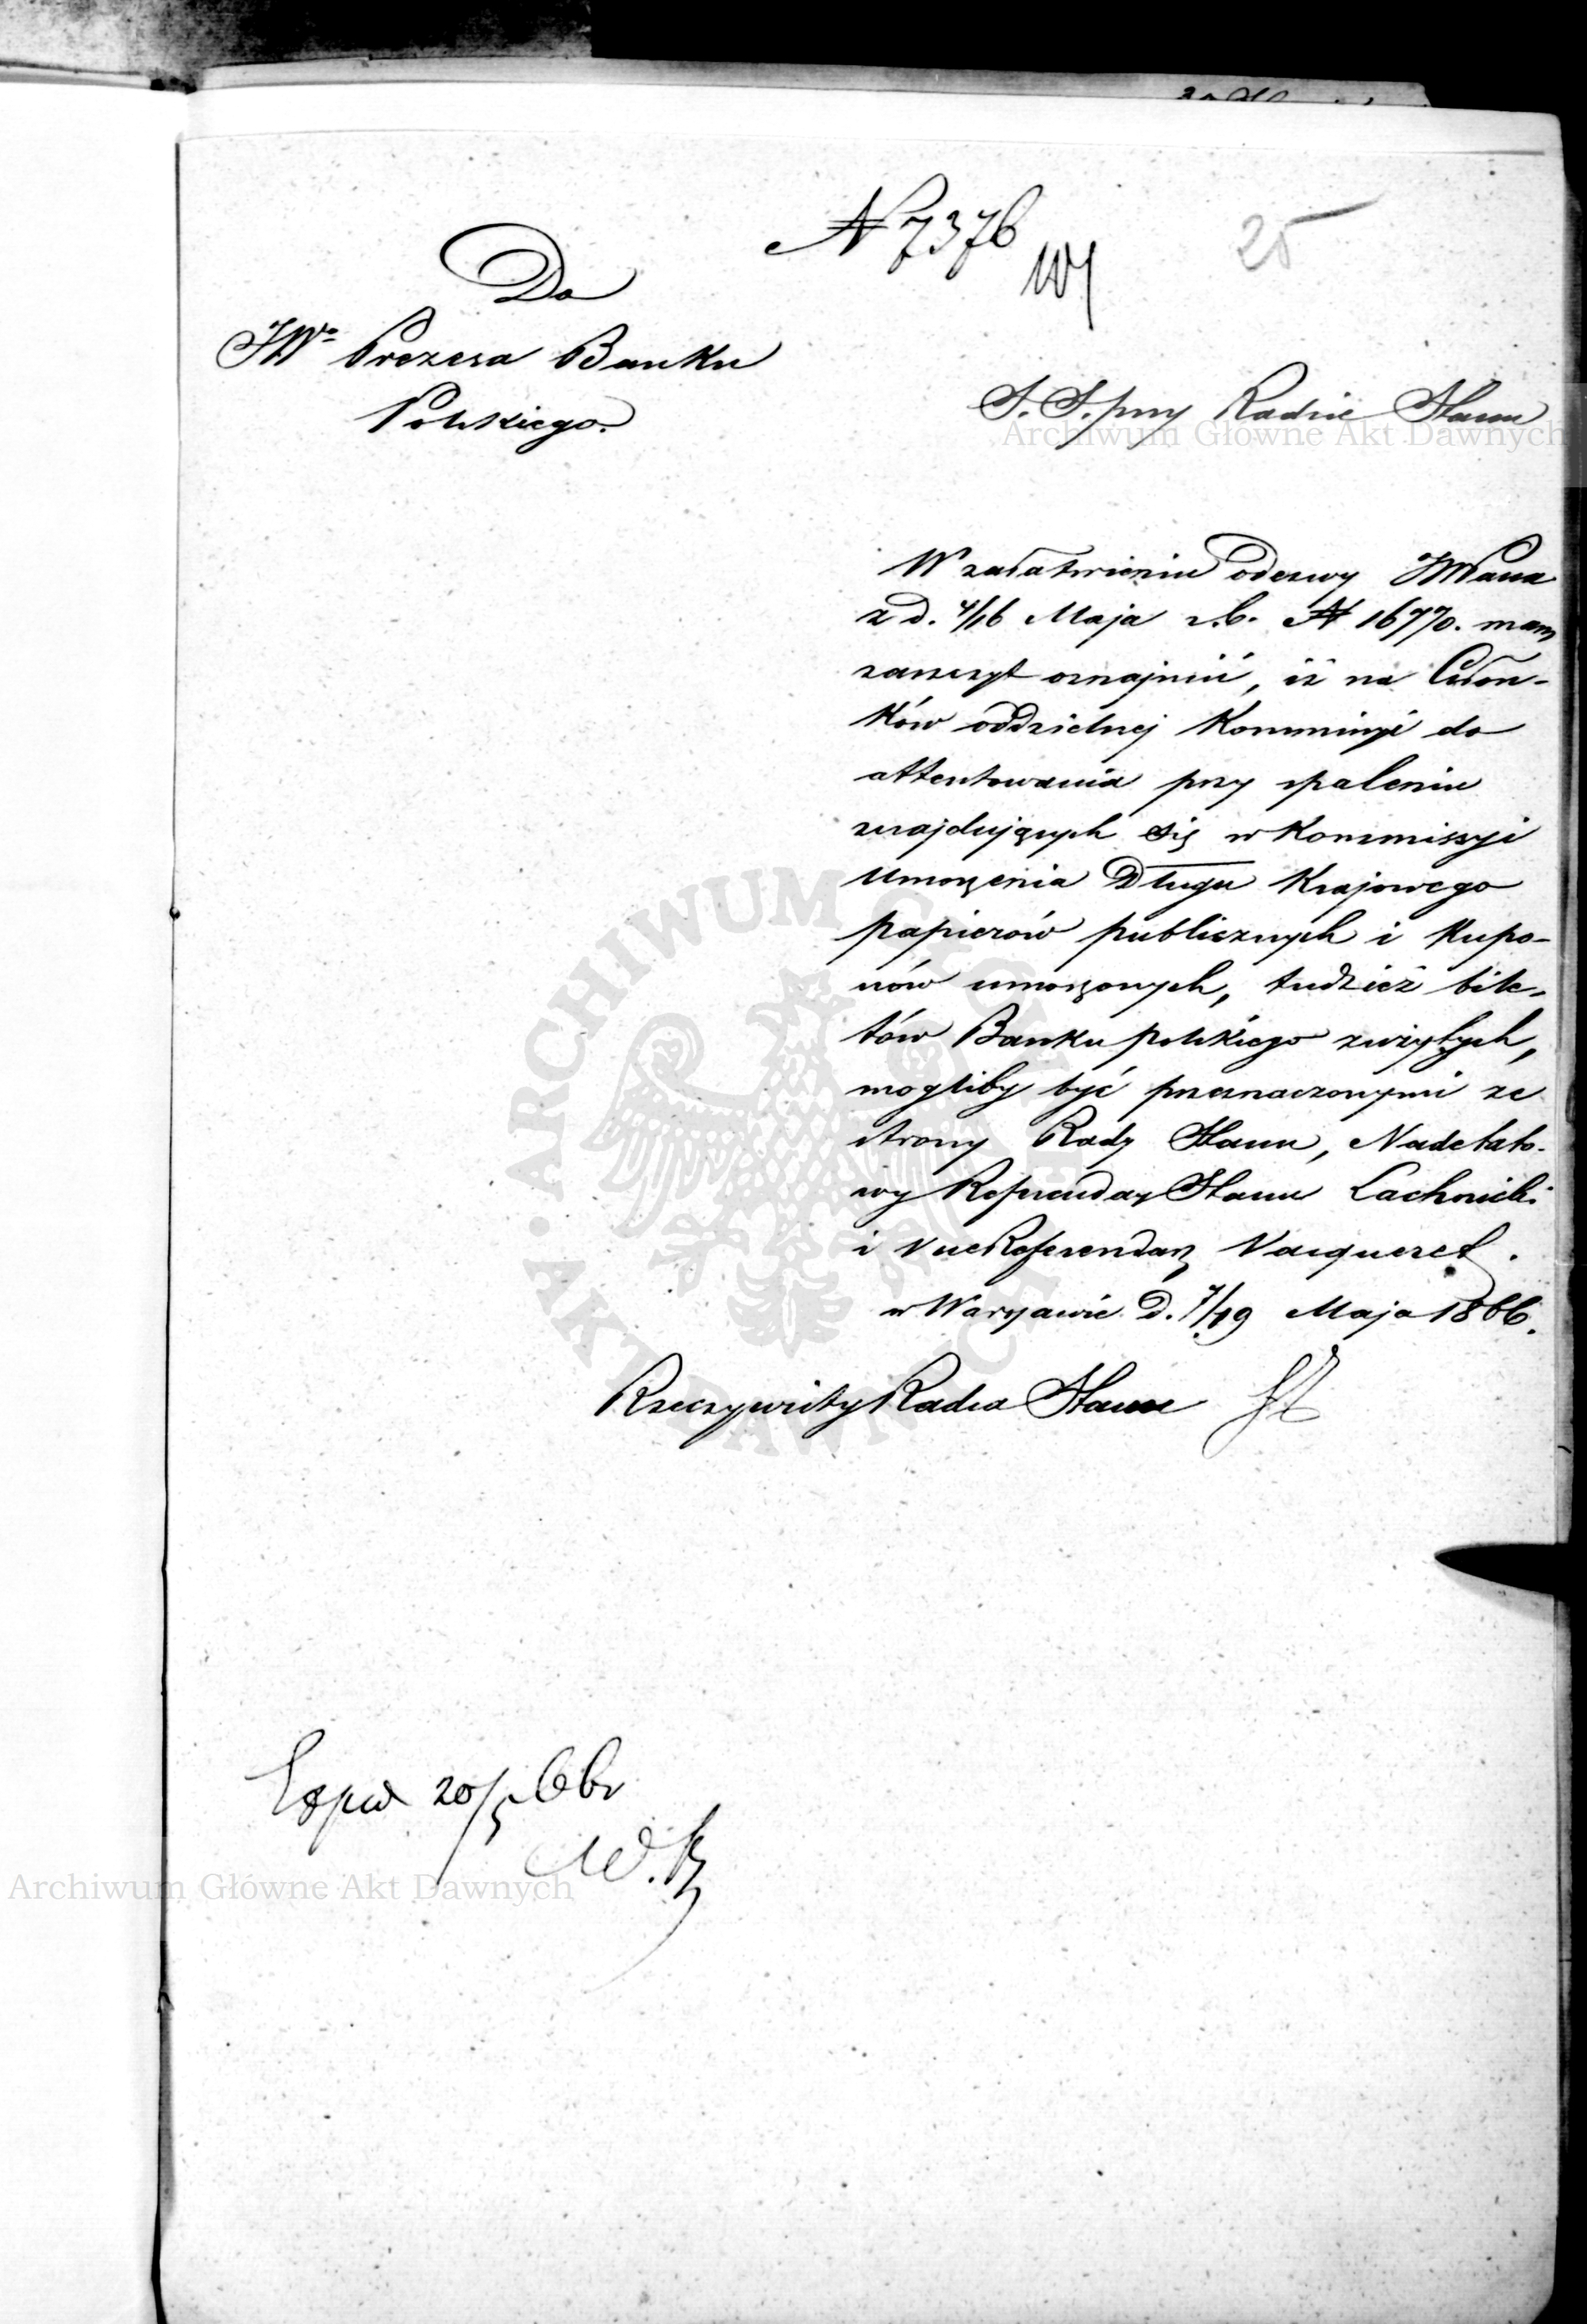 N 7376
25
Do
JWo Prezesa Banku
Polskiego.
S. S. przy Radzie Stanu
Archiwum Główne Akt Dawnych
W załatwieniu odezwy JWPana
z d. 4/16 Maja r.b. N 16770. mam
zaszczyt oznajmić, iż na Człon-
ków oddzielnej Kommissyi do
attentowania przy spaleniu
znajdujących się w Kommissyi
Umorzenia Długu Krajowego
papierów publicznych i kupo-
nów umorzonych, tudzież bile-
tów Banku polskiego zużytych,
mogliby być przeznaczonymi ze
strony Rady Stanu, Nadetato-
wy Referendarz Stanu Lachnicki
i ViceReferendarz Vacqueret.
w Warszawie d. 7/19 Maja 1866.
Rzeczywisty Radca Stanu
20/5 66
Archiwum Główne Akt Dawnych
ARCHIWUM GŁÓWNE AKT DAWNYCH